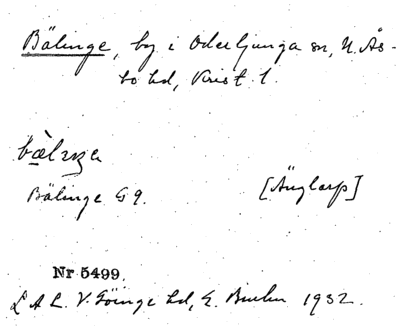 Bälinge, by i Oderljunga sn, N. Ås-
bo hd, Krist. l.
Bälinge G 9.
[Änglarp]
Nr 5499.
L A L. V. Göinge hd, 1932.